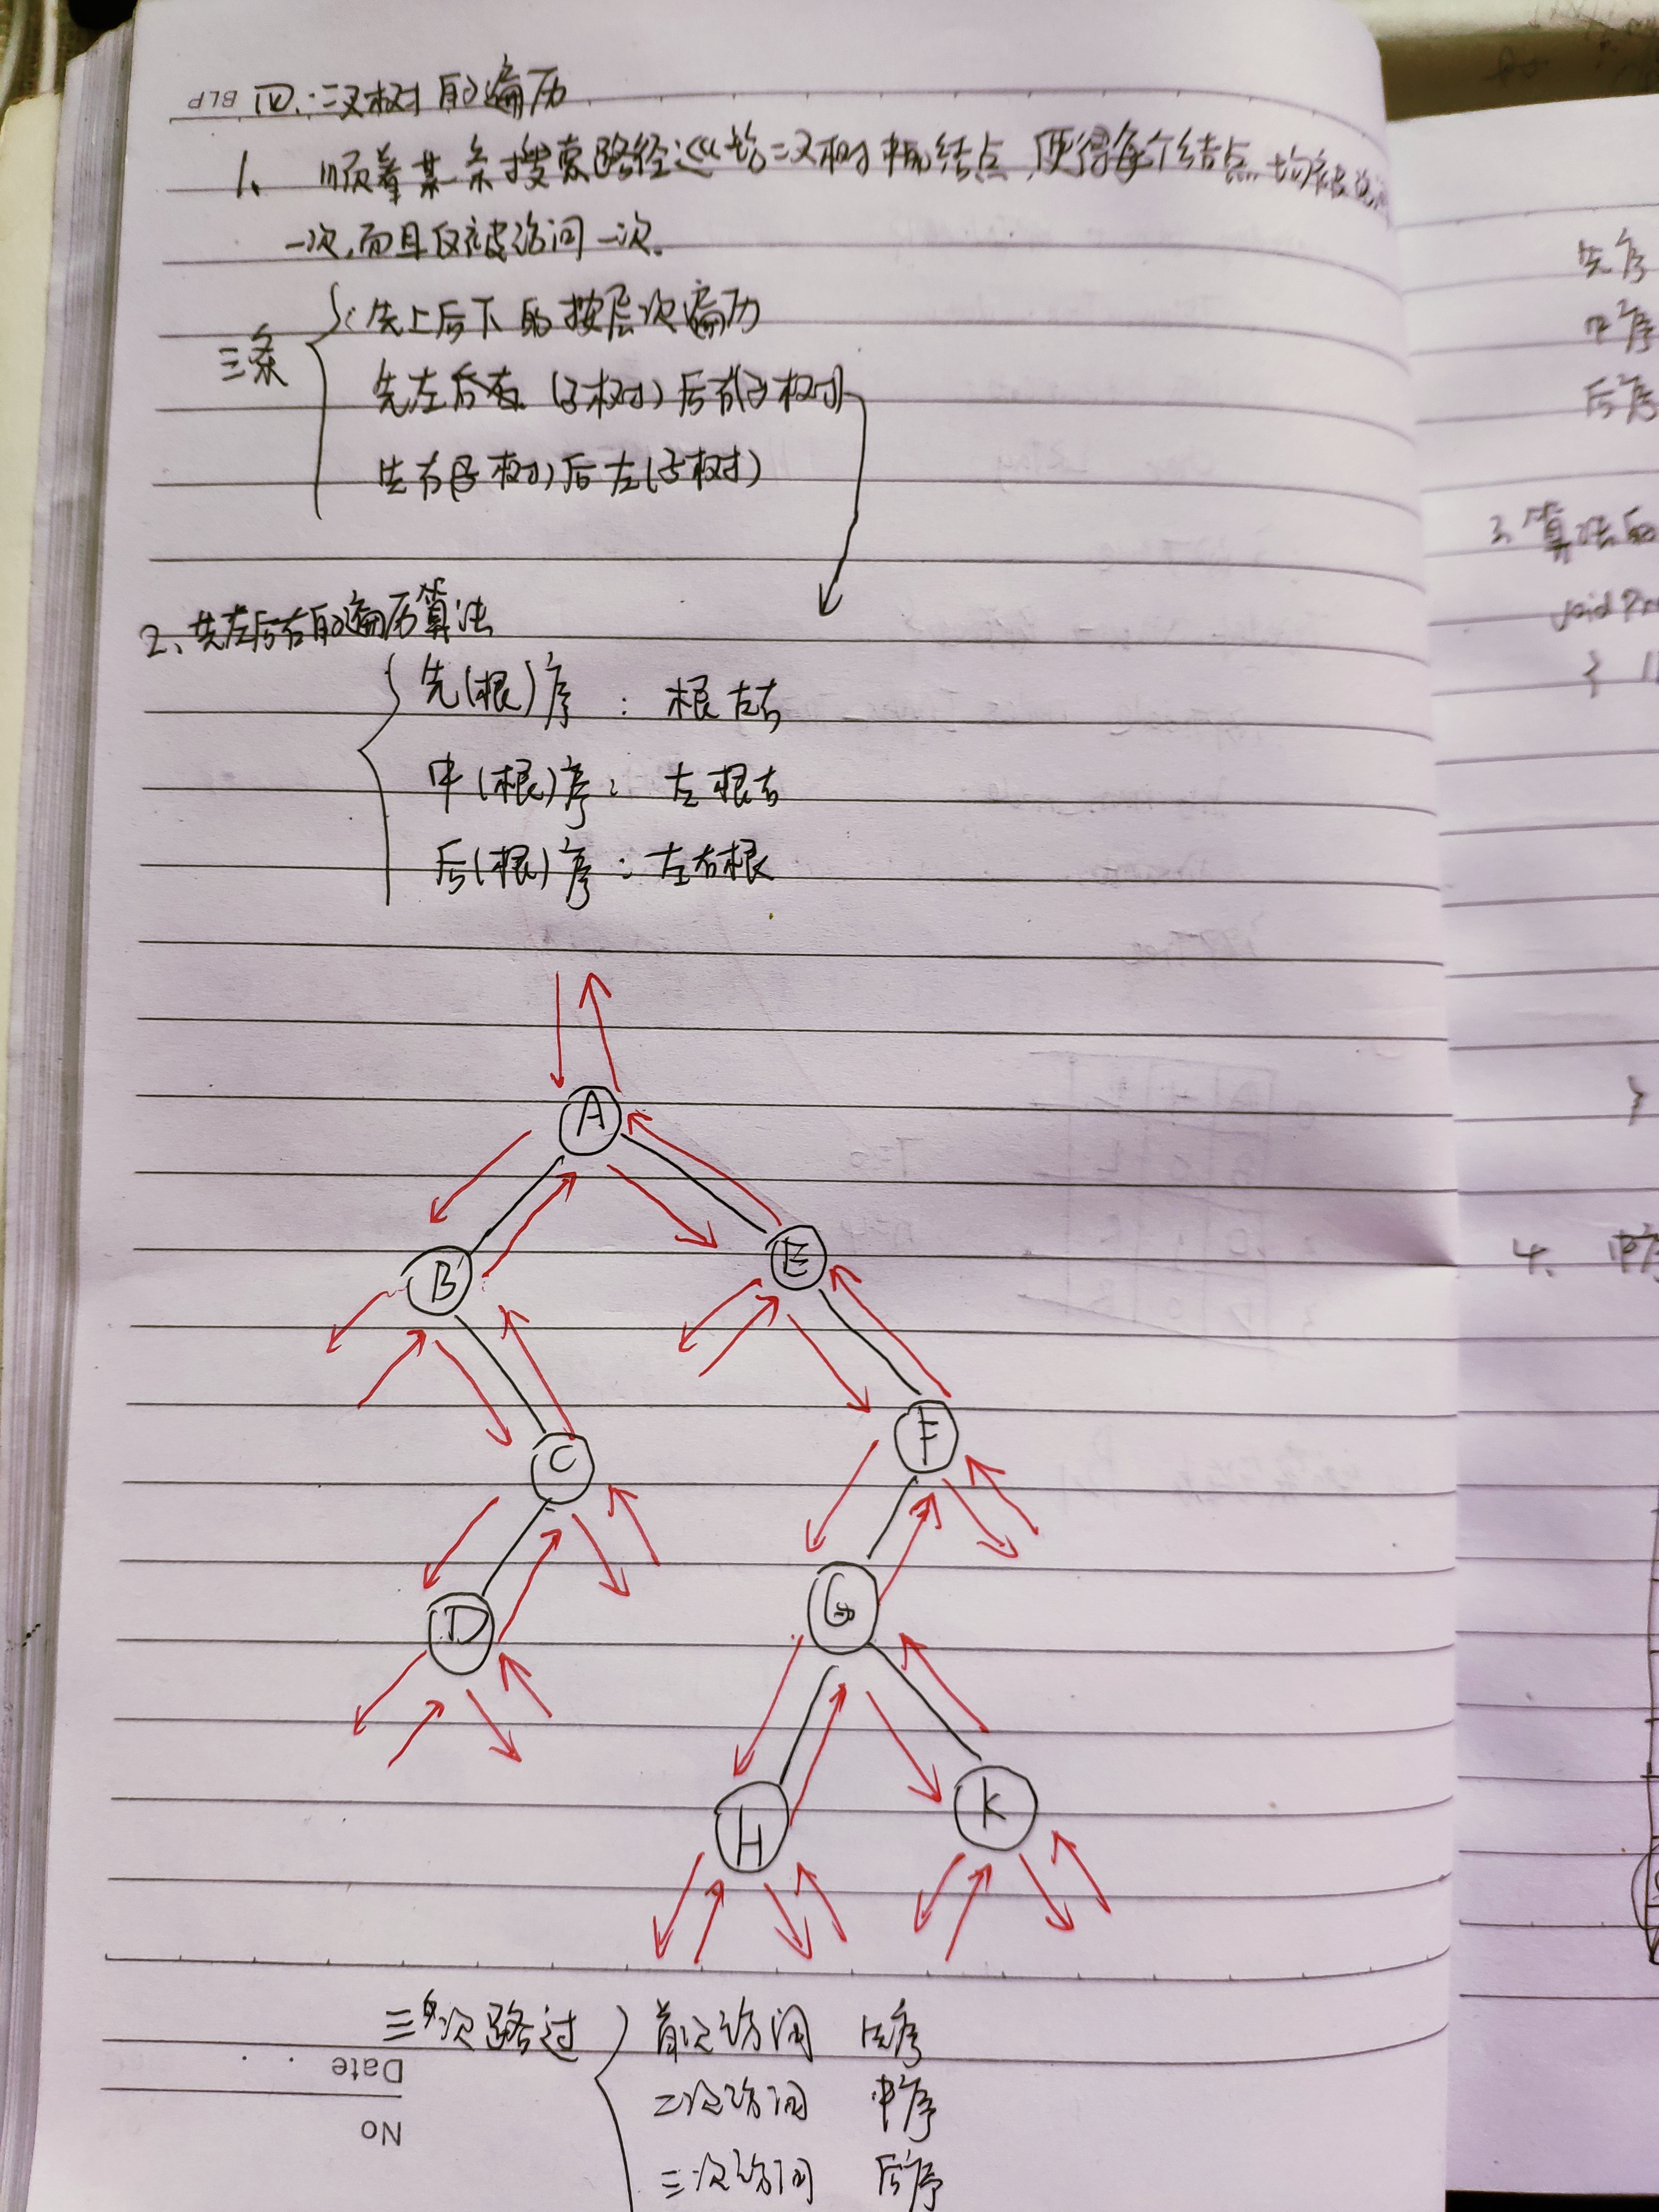 四.二叉树的遍历
BLP
1、顺着某一条搜索路径巡访二叉树中的结点,使得每个结点均被
一次,而且仅被访问一次.
三条
先上后下的按层次遍历
先左后右(子树)后右(子树)
先右(子树)后左(子树)
2、先左后右的遍历算法
先(根)序:根左右
中(根)序:左根右
后(根)序:左右根
A
B
E
C
F
D
G
H
K
三次路过
首次访问 先序
二次访问 中序
三次访问 后序
Date
No
先序
中序
后序
3.算法的
void Pre
{
}
4、中序